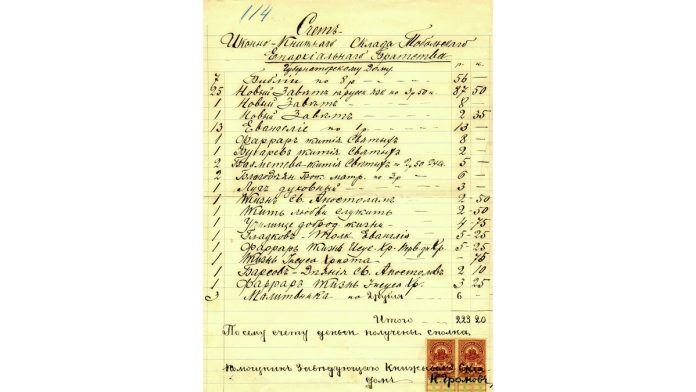 114
Счетъ
Иконно-Книжнаго Склада Тобольскаго
Епархіальнаго Братства
Губернаторскому Дому.
р. к.
7 Библіи по 8 р 56 -
25 Новый Завѣтъ на русс. яз. по 3р 50к. 87 50
1 Новый Завѣтъ 8 -
1 Новый Завѣтъ 2 35
13 Евангеліе по 1 р. 13 -
1 Фарраръ житія Святыхъ 8 -
1 Бухаревъ житія Святыхъ 2 -
2 Бахметева житія Святыхъ по 2р50 5 -
2 Бож. матр. по 3р 6 -
1 Лугъ духовный 3 -
1 Жизнь Св. Апостоловъ 2 50
1 Жить любви служить 2 50
1 Училище доброд жизнь 4 75
1 Гладковъ - Толк. Евангеліе 5 25
1 Фарраръ Жизнь Исус. Хр. 5 25
1 Жизнь Іисуса Христа - 75
1 Барсовъ - Дѣянія Св. Апостоловъ 2 10
1 Фарраръ Жизнь Іисуса Хр. 3 25
3 Молитвника по 2 рубля 6 -
Итого 223 20
По сему счету деньги получены сполна.
Помощникъ Завѣдующаго Книжнымъ Скла-
домъ К. Громовъ